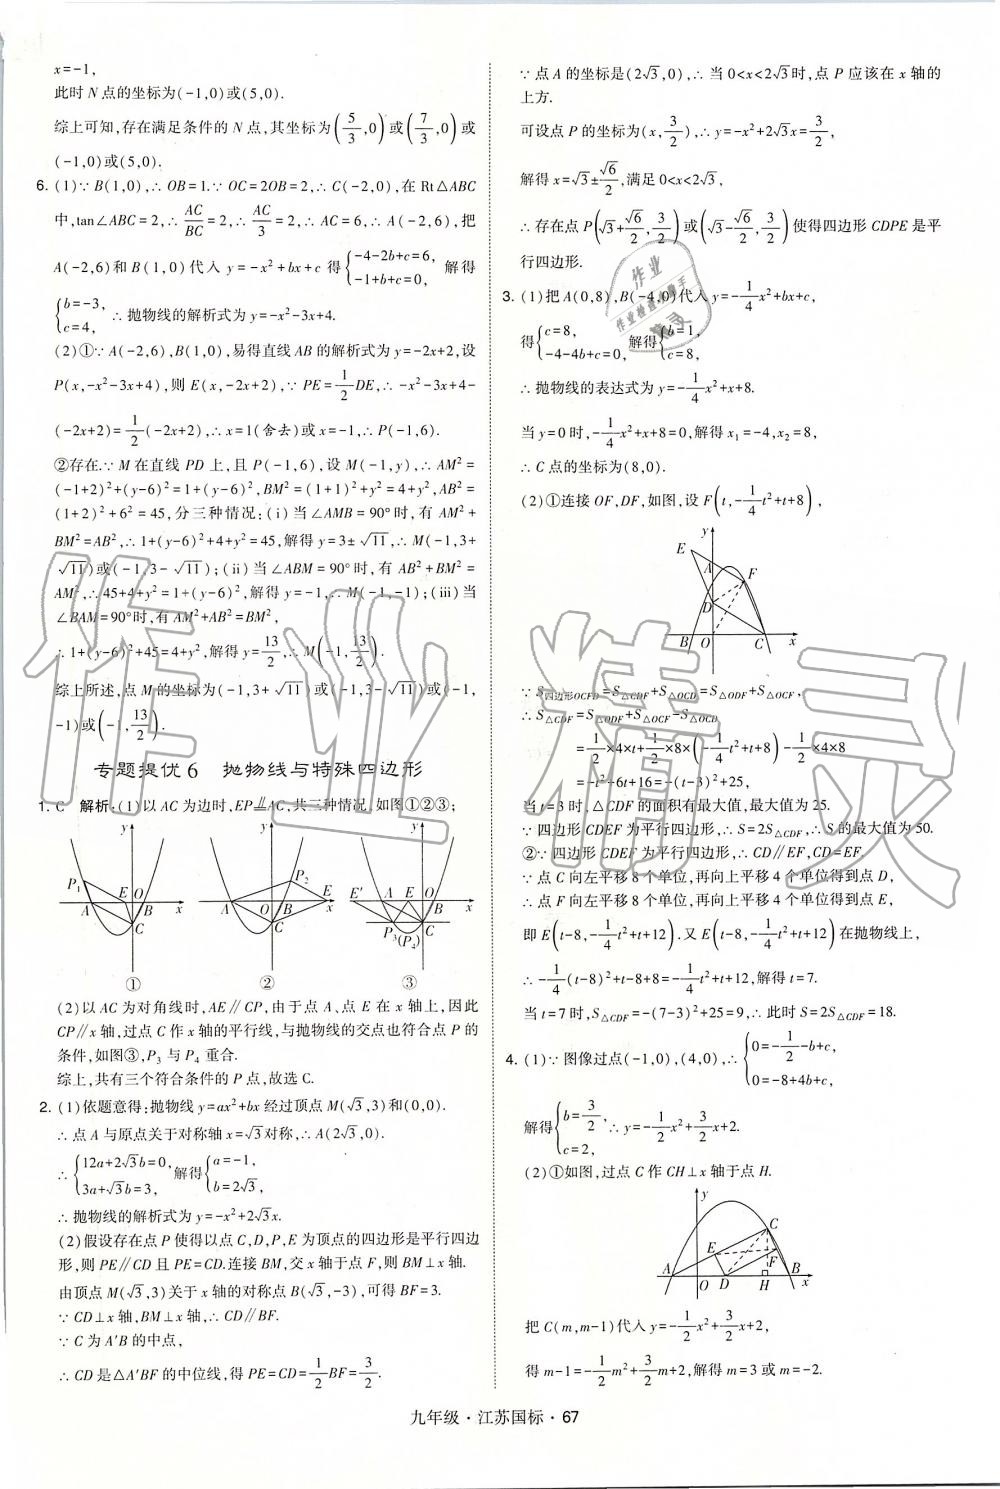 x=-1,
此时 N 点的坐标为(-1,0)或(5,0).
综上可知,存在满足条件的 N 点,其坐标为(5/3,0)或(7/3,0)或
(-1,0)或(5,0).
6. (1)∵B(1,0),∴OB=1.∵OC=2OB=2,∴C(-2,0),在 Rt△ABC
中,tan∠ABC=2,∴AC/BC=2,∴AC/3=2,∴AC=6,∴A(-2,6),把
A(-2,6)和 B(1,0)代入 y=-x²+bx+c 得{-4-2b+c=6, -1+b+c=0, 解得
{b=-3, c=4, ∴抛物线的解析式为 y=-x²-3x+4.
(2)①∵A(-2,6),B(1,0),易得直线 AB 的解析式为 y=-2x+2,设
P(x,-x²-3x+4),则 E(x,-2x+2),∵PE=1/2DE,∴-x²-3x+4-
(-2x+2)=1/2(-2x+2),∴x=1(舍去)或 x=-1,∴P(-1,6).
②存在.∵M 在直线 PD 上,且 P(-1,6),设 M(-1,y),∴AM²=
(-1+2)²+(y-6)²=1+(y-6)²,BM²=(1+1)²+y²=4+y²,AB²=
(1+2)²+6²=45,分三种情况:(i)当∠AMB=90°时,有 AM²+
BM²=AB²,∴1+(y-6)²+4+y²=45,解得 y=3±√11,∴M(-1,3+
√11)或(-1,3-√11);(ii)当∠ABM=90°时,有 AB²+BM²=
AM²,∴45+4+y²=1+(y-6)²,解得 y=-1,∴M(-1,-1);(iii)当
∠BAM=90°时,有 AM²+AB²=BM²,
∴1+(y-6)²+45=4+y²,解得 y=13/2,∴M(-1,13/2).
综上所述,点 M 的坐标为(-1,3+√11)或(-1,3-√11)或(-1,
-1)或(-1,13/2).
专题提优 6 抛物线与特殊四边形
1. C 解析:(1)以 AC 为边时,EP∥AC,共三种情况,如图①②③;
y y y
P₁ E O A B x C
P₂ A O B E x C
E′ A E O B x P₃(P₄) C
① ② ③
(2)以 AC 为对角线时,AE∥CP,由于点 A、点 E 在 x 轴上,因此
CP∥x 轴,过点 C 作 x 轴的平行线,与抛物线的交点也符合点 P 的
条件,如图③,P₃ 与 P₄ 重合.
综上,共有三个符合条件的 P 点,故选 C.
2. (1)依题意得:抛物线 y=ax²+bx 经过顶点 M(√3,3)和(0,0).
∴点 A 与原点关于对称轴 x=√3对称,∴A(2√3,0).
∴{12a+2√3b=0, 3a+√3b=3, 解得{a=-1, b=2√3,
∴抛物线的解析式为 y=-x²+2√3x.
(2)假设存在点 P 使得以点 C,D,P,E 为顶点的四边形是平行四边
形,则 PE∥CD 且 PE=CD.连接 BM,交 x 轴于点 F,则 BM⊥x 轴.
由顶点 M(√3,3)关于 x 轴的对称点 B(√3,-3),可得 BF=3.
∵CD⊥x 轴,BM⊥x 轴,∴CD∥BF.
∵C 为 A′B 的中点,
∴CD 是△A′BF 的中位线,得 PE=CD=1/2BF=3/2.
∵点 A 的坐标是(2√3,0),∴当 0<x<2√3时,点 P 应该在 x 轴的
上方.
可设点 P 的坐标为(x,3/2),∴y=-x²+2√3x=3/2,
解得 x=√3±√6/2,满足 0<x<2√3,
∴存在点 P(√3+√6/2,3/2)或(√3-√6/2,3/2)使得四边形 CDPE 是平
行四边形.
3. (1)把 A(0,8),B(-4,0)代入 y=-1/4x²+bx+c,
得{c=8, -4-4b+c=0, 解得{b=1, c=8,
∴抛物线的表达式为 y=-1/4x²+x+8.
当 y=0 时,-1/4x²+x+8=0,解得 x₁=-4,x₂=8,
∴C 点的坐标为(8,0).
(2)①连接 OF,DF,如图,设 F(t,-1/4t²+t+8),
y E A F D B O C x
∵S四边形OCFD=S△CDF+S△OCD=S△ODF+S△OCF,
∴S△CDF=S△ODF+S△OCF-S△OCD
=1/2×4×t+1/2×8×(-1/4t²+t+8)-1/2×4×8
=-t²+6t+16=-(t-3)²+25,
当 t=3 时,△CDF 的面积有最大值,最大值为 25.
∵四边形 CDEF 为平行四边形,∴S=2S△CDF,∴S 的最大值为 50.
②∵四边形 CDEF 为平行四边形,∴CD∥EF,CD=EF.
∵点 C 向左平移 8 个单位,再向上平移 4 个单位得到点 D,
∴点 F 向左平移 8 个单位,再向上平移 4 个单位得到点 E,
即 E(t-8,-1/4t²+t+12).又 E(t-8,-1/4t²+t+12)在抛物线上,
∴-1/4(t-8)²+t-8+8=-1/4t²+t+12,解得 t=7.
当 t=7 时,S△CDF=-(7-3)²+25=9,∴此时 S=2S△CDF=18.
4. (1)∵图像过点(-1,0),(4,0),∴{0=-1/2-b+c, 0=-8+4b+c,
解得{b=3/2, c=2, ∴y=-1/2x²+3/2x+2.
(2)①如图,过点 C 作 CH⊥x 轴于点 H.
y C E F A O D H B x
把 C(m,m-1)代入 y=-1/2x²+3/2x+2,
得 m-1=-1/2m²+3/2m+2,解得 m=3 或 m=-2.
九年级·江苏国标·67
作业精灵
作业
作业检查小助手
精灵